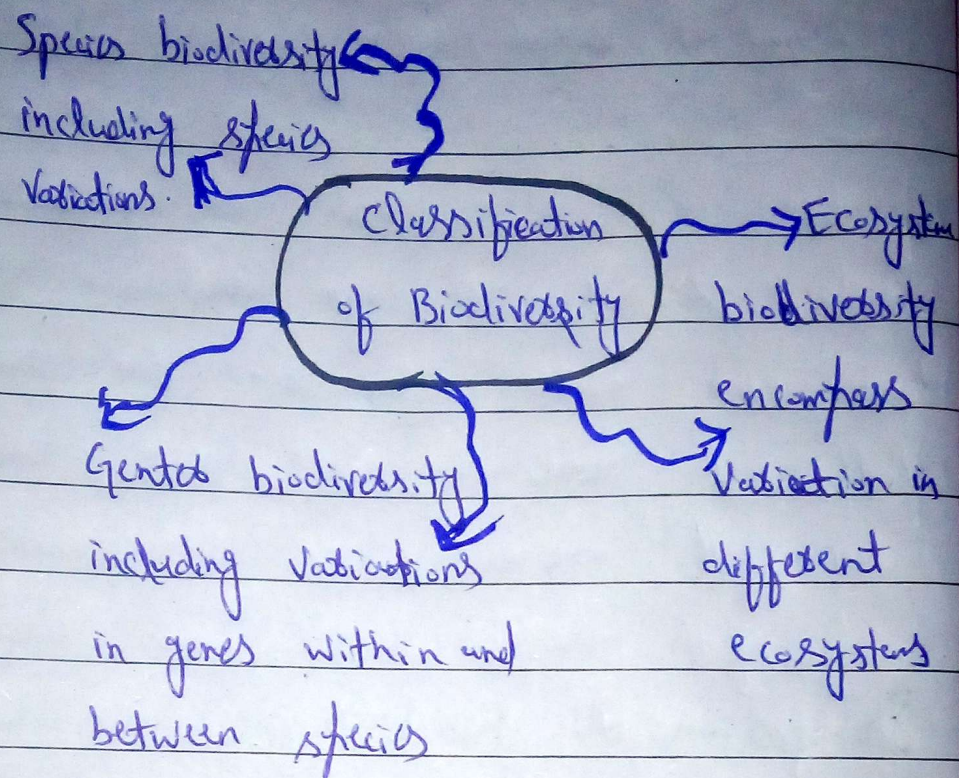 Species biodiversity
including species
Variations.
Classification
of Biodiversity
Ecosystem
biodiversity
encompass
Variation in
different
ecosystems
biodiversity
including variations
in genes within and
between species